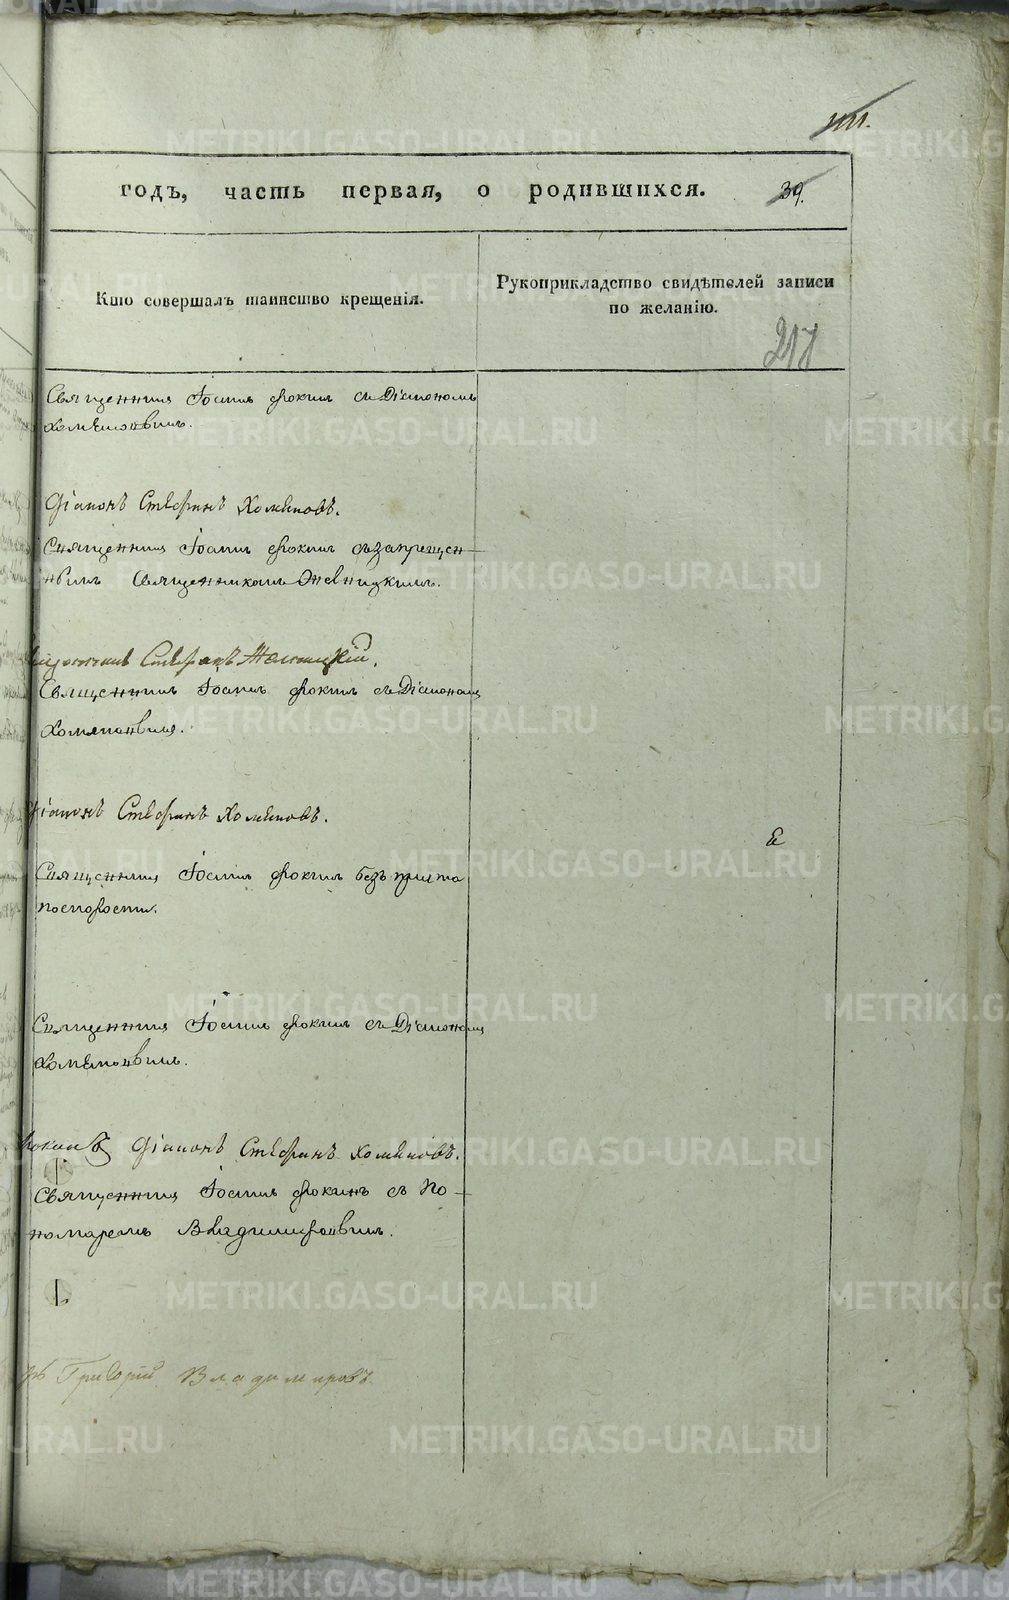 годъ, часть первая, о родившихся. 39.
Кто совершалъ таинство крещенія.
Рукоприкладство свидѣтелей записи
по желанію.
217
Священникъ Іоаннъ Фокинъ съ Діакономъ
Хомяковымъ.
Діаконъ Стефанъ Хомяковъ.
Священникъ Іоаннъ Фокинъ съ запрещен-
нымъ Священникомъ
Стефанъ
Священникъ Іоаннъ Фокинъ съ Діакономъ
Хомяковымъ.
Діаконъ Стефанъ Хомяковъ.
Священникъ Іоаннъ Фокинъ безъ причта
по скорости.
Священникъ Іоаннъ Фокинъ съ Діакономъ
Хомяковымъ.
Діаконъ Стефанъ Хомяковъ.
Священникъ Іоаннъ Фокинъ съ По-
номаремъ Владимировымъ.
Григорій Владимировъ
METRIKI.GASO-URAL.RU